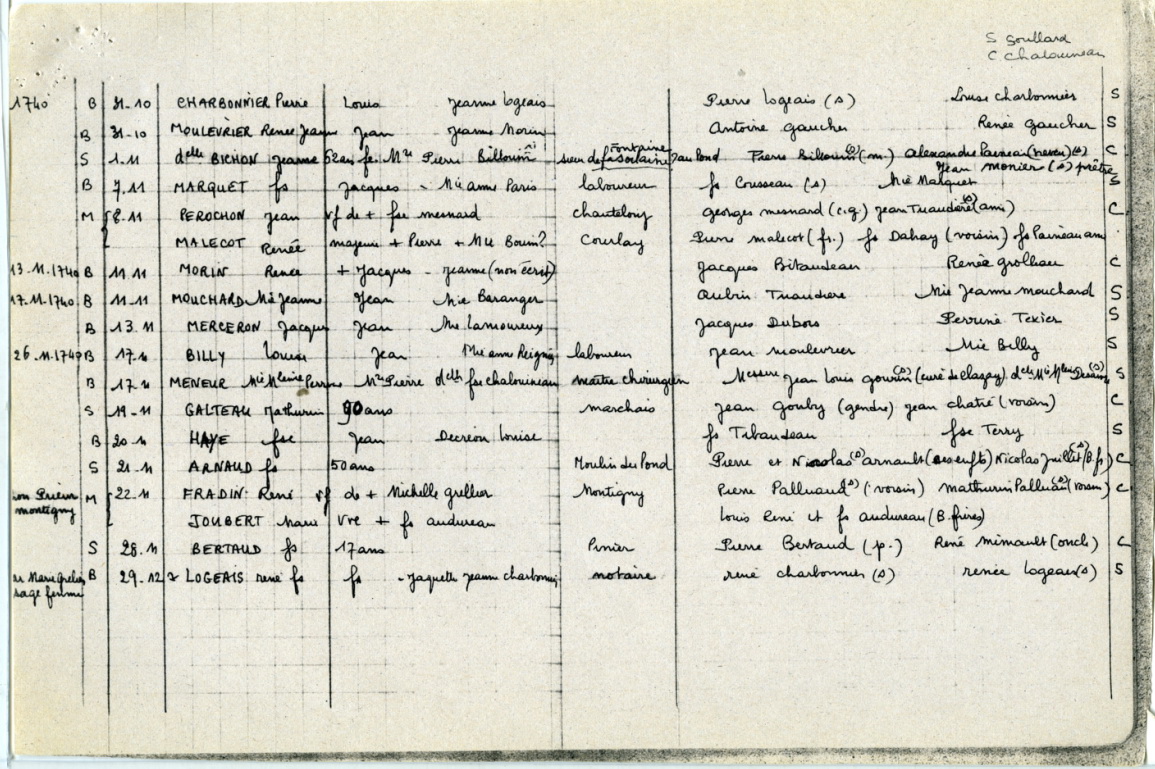 S Soullard
C Chalouineau
1740 B 31-10 CHARBONNIER Pierre Louis Jeanne Logeais Pierre Logeais (s) Louise Charbonnier S
B 31-10 MOULEVRIER Renée Jeanne Jean Jeanne Morin Antoine Gaucher Renée Gaucher S
S 1-11 delle BICHON Jeanne 52 ans fe Me Pierre sieur de Fontaine au Pond Pierre (s) (m.) Alexandre (neveu) (s) C
Jean Monier (s) prêtre
B 7.11 MARQUET fs Jacques - Mie anne Paris laboureur fs Cousseau (s) Mie Marquet S
M { 8.11 PEROCHON Jean vf de + fse mesnard chanteloup Georges mesnard (c.g) Jean Tuaudière (s) (ami) C
MALECOT Renée majeure + Pierre + Mie Bouin? Courlay Pierre malecot (fr.) fs Dahay (voisin) fs Paineau ami
13.11.1740 B 11.11 MORIN Renée + Jacques - Jeanne (non écrit) Jacques Bitaudeau Renée Grolleau C
17.11.1740 B 11-11 MOUCHARD Mie Jeanne Jean Mie Baranger Aubin Tuaudiere Mie Jeanne mouchard S
B 13.11 MERCERON Jacques Jean Mie Lamoureux Jacques Dubois Perrine Texier S
26.11.1740 B 17.11 BILLY Louise Jean Mie anne laboureur Jean moulevrier Mie Billy S
B 17.11 MENEUR Mie Mleine Perrine Me Pierre delle fse chalouineau maître chirurgien Messire Jean Louis (s) (curé de Clazay) delle Mie Mleine (s) S
S 19-11 GALTEAU Mathurin 90 ans marchais Jean Gouby (gendre) Jean chatré (voisin) C
B 20.11 HAYE fse Jean Decréon Louise fs Tibaudeau fse Terry S
S 21.11 ARNAUD fs 50 ans Moulin du Pond Pierre et Nicolas (s) arnault (ses enfts) Nicolas Juillet (s) (B.fs) C
Prieur montigny M { 22.11 FRADIN René vf de + Michelle grellier Montigny Pierre Palluaud (s) (voisin) mathurin Palluau (s) (voisin) C
JOUBERT Marie Vve + fs audureau Louis René et fs audureau (B.frères)
S 28.11 BERTAUD fs 17 ans Pinier Pierre Bertaud (p.) René mimault (oncle) C
Marie sage femme B 29.12 LOGEAIS rené fs fs - Jaquette Jeanne charbonnier notaire rené charbonnier (s) renée logeais (s) S